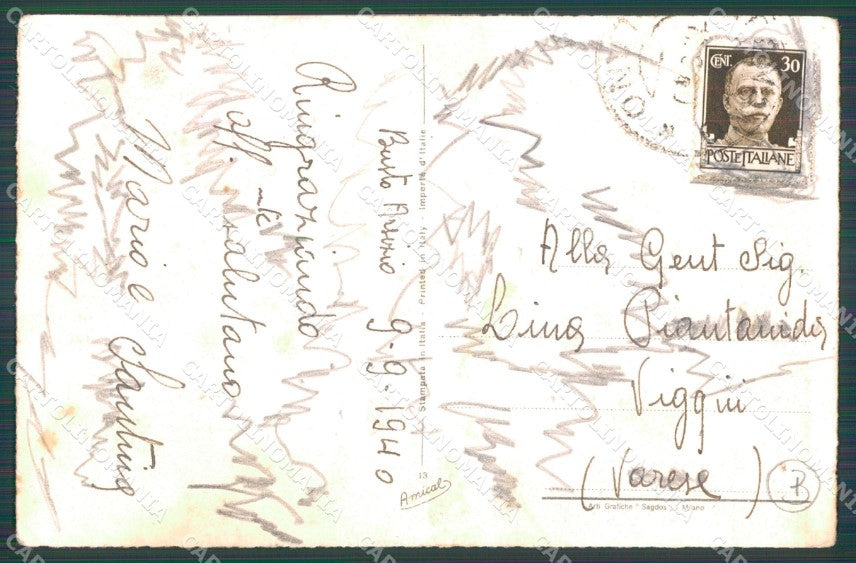 Busto Arsizio 9-9-1940
Ringraziando
aff.
salutano
Mario e Santina
Stampata in Italia - Printed in Italy - Imperté d'Italie
13
Amical
CENT. 30
POSTE ITALIANE
Alla Gent Sig.
Lina Piantanida
Viggiù
(Varese)
B
Arti Grafiche "Sagdos" - Milano
CARTOLINOMANIA